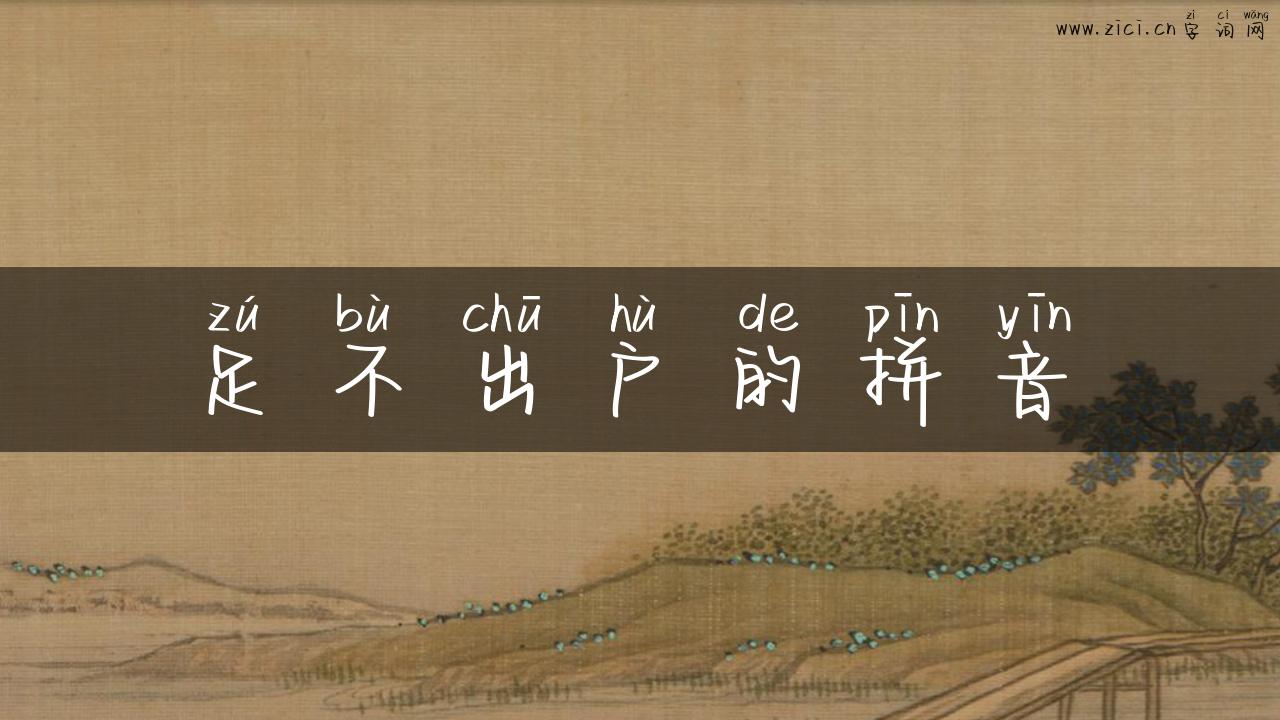 zì cí wǎng
www.zici.cn字词网
zú bù chū hù de pīn yīn
足不出户的拼音